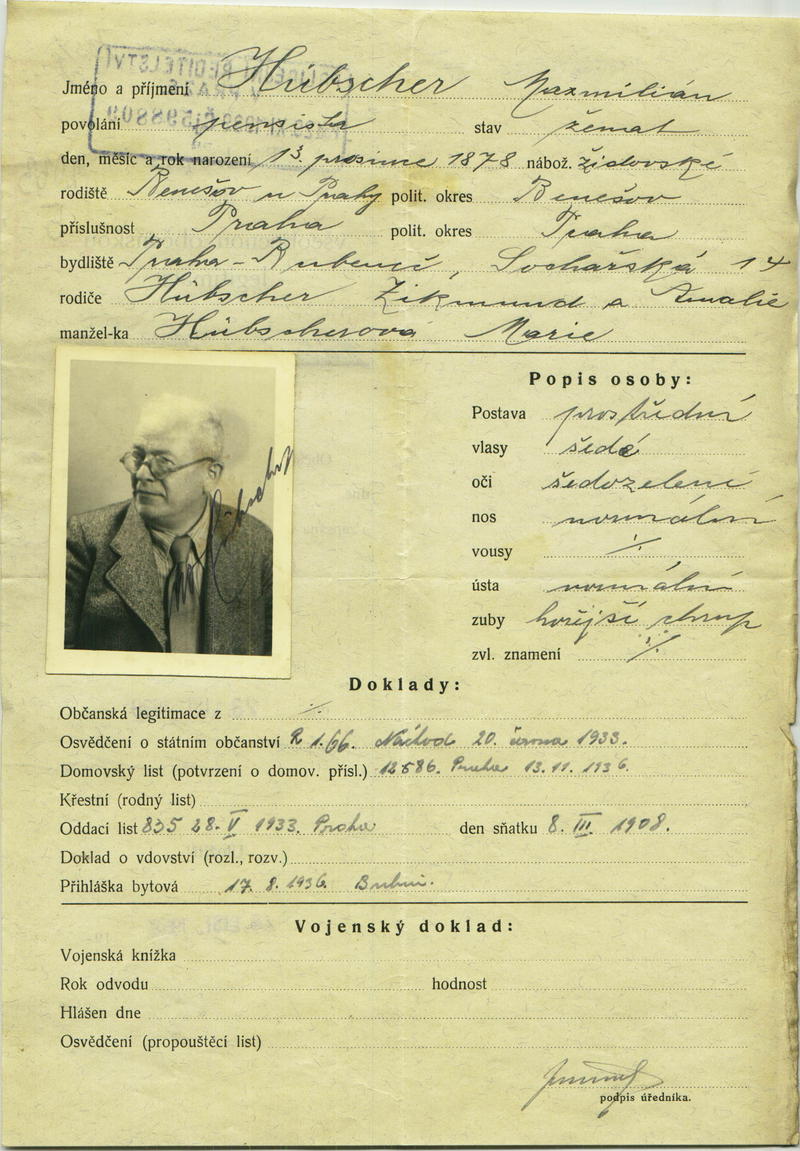 Jméno a příjmení Hübscher Maxmilián
povolání pensista stav ženat
den, měsíc a rok narození 13. prosince 1878 nábož. židovské
rodiště Benešov u Prahy polit. okres Benešov
příslušnost Praha polit. okres Praha
bydliště Praha - Bubeneč, Sochařská 14
rodiče Hübscher Zikmund a Amalie
manžel-ka Hübscherová Marie
Popis osoby:
Postava prostřední
vlasy šedé
oči šedozelené
nos normální
vousy ./.
ústa normální
zuby hořejší chrup
zvl. znamení ./.
Doklady:
Občanská legitimace z ./.
Osvědčení o státním občanství R 1.66. Náchod 20. února 1933.
Domovský list (potvrzení o domov. přísl.) 12586. Praha 13.11. 1936.
Křestní (rodný list)
Oddací list 835 28. V 1933. Praha den sňatku 8. III. 1908.
Doklad o vdovství (rozl., rozv.)
Přihláška bytová 17. 8. 1936.
Vojenský doklad:
Vojenská knížka
Rok odvodu hodnost
Hlášen dne
Osvědčení (propouštěcí list)
podpis úředníka.